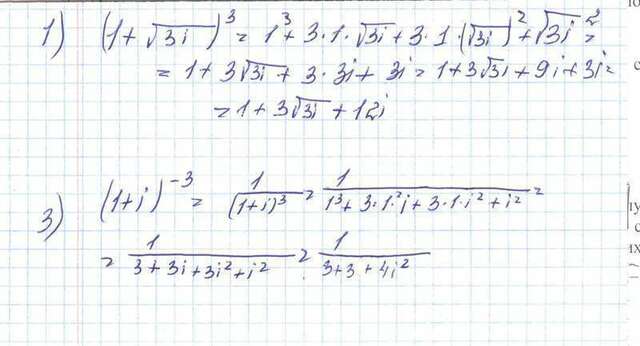 1) (1+√3i)³ = 1³+3·1·√3i+3·1·(√3i)²+√3i² =
= 1+3√3i+3·3i+3i = 1+3√3i+9i+3i =
= 1+3√3i+12i
3) (1+i)⁻³ = 1/(1+i)³ = 1/(1³+3·1²·i+3·1·i²+i²) =
= 1/(3+3i+3i²+i²) = 1/(3+3+4i²)